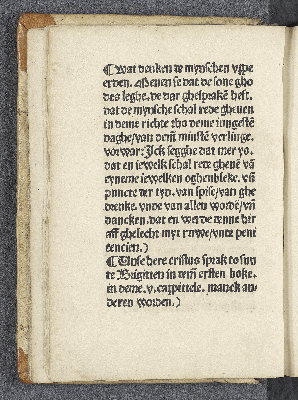 ¶ Wat denken te mynschen vppe
erden. Menen se dat de sone gho
des leghe. de dar ghesprakē heft.
dat de mynsche schal rede gheuen
in deme richte tho deme iungestē
daghe/van dem̄ minstē verlinge.
vorwar. Jck segghe dat mer yo.
dat en iewelk schal rede gheuē vā
eyneme iewelken oghenbleke. vn̄
pūncte der tyd. van spise/van ghe
denke. vnde van allen wordē/vn̄
dancken. dat en werde tenne hir
aff ghelecht myt ruwe/vnte peni
tencien.)
¶ Unse here cristus sprak to sun
te Brigitten in rem̄ ersten boke.
in deme. v. cappittele. manck an-
deren worden.)